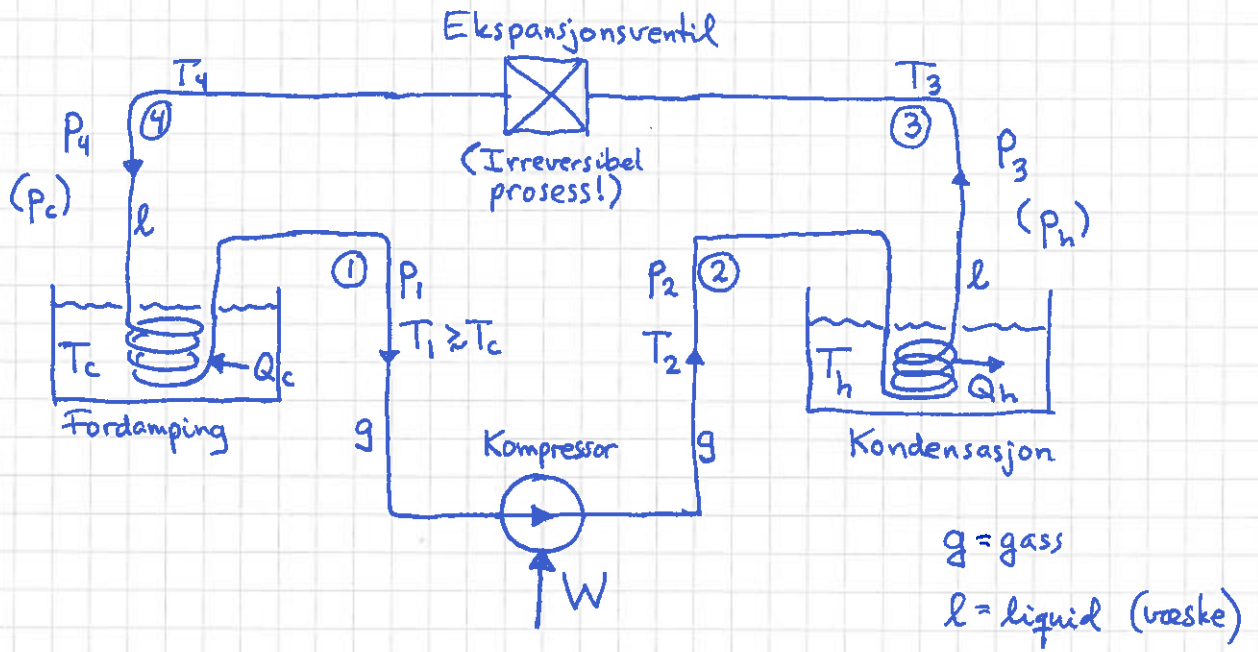 Ekspansjonsventil
T₄
T₃
④
③
P₄
(Irreversibel
prosess!)
P₃
(Pc)
(Ph)
l
l
①
P₁
P₂
②
T₁ ≳ Tc
T₂
Tc
Qc
Th
Qh
Fordamping
g
Kompressor
g
Kondensasjon
W
g = gass
l = liquid (væske)